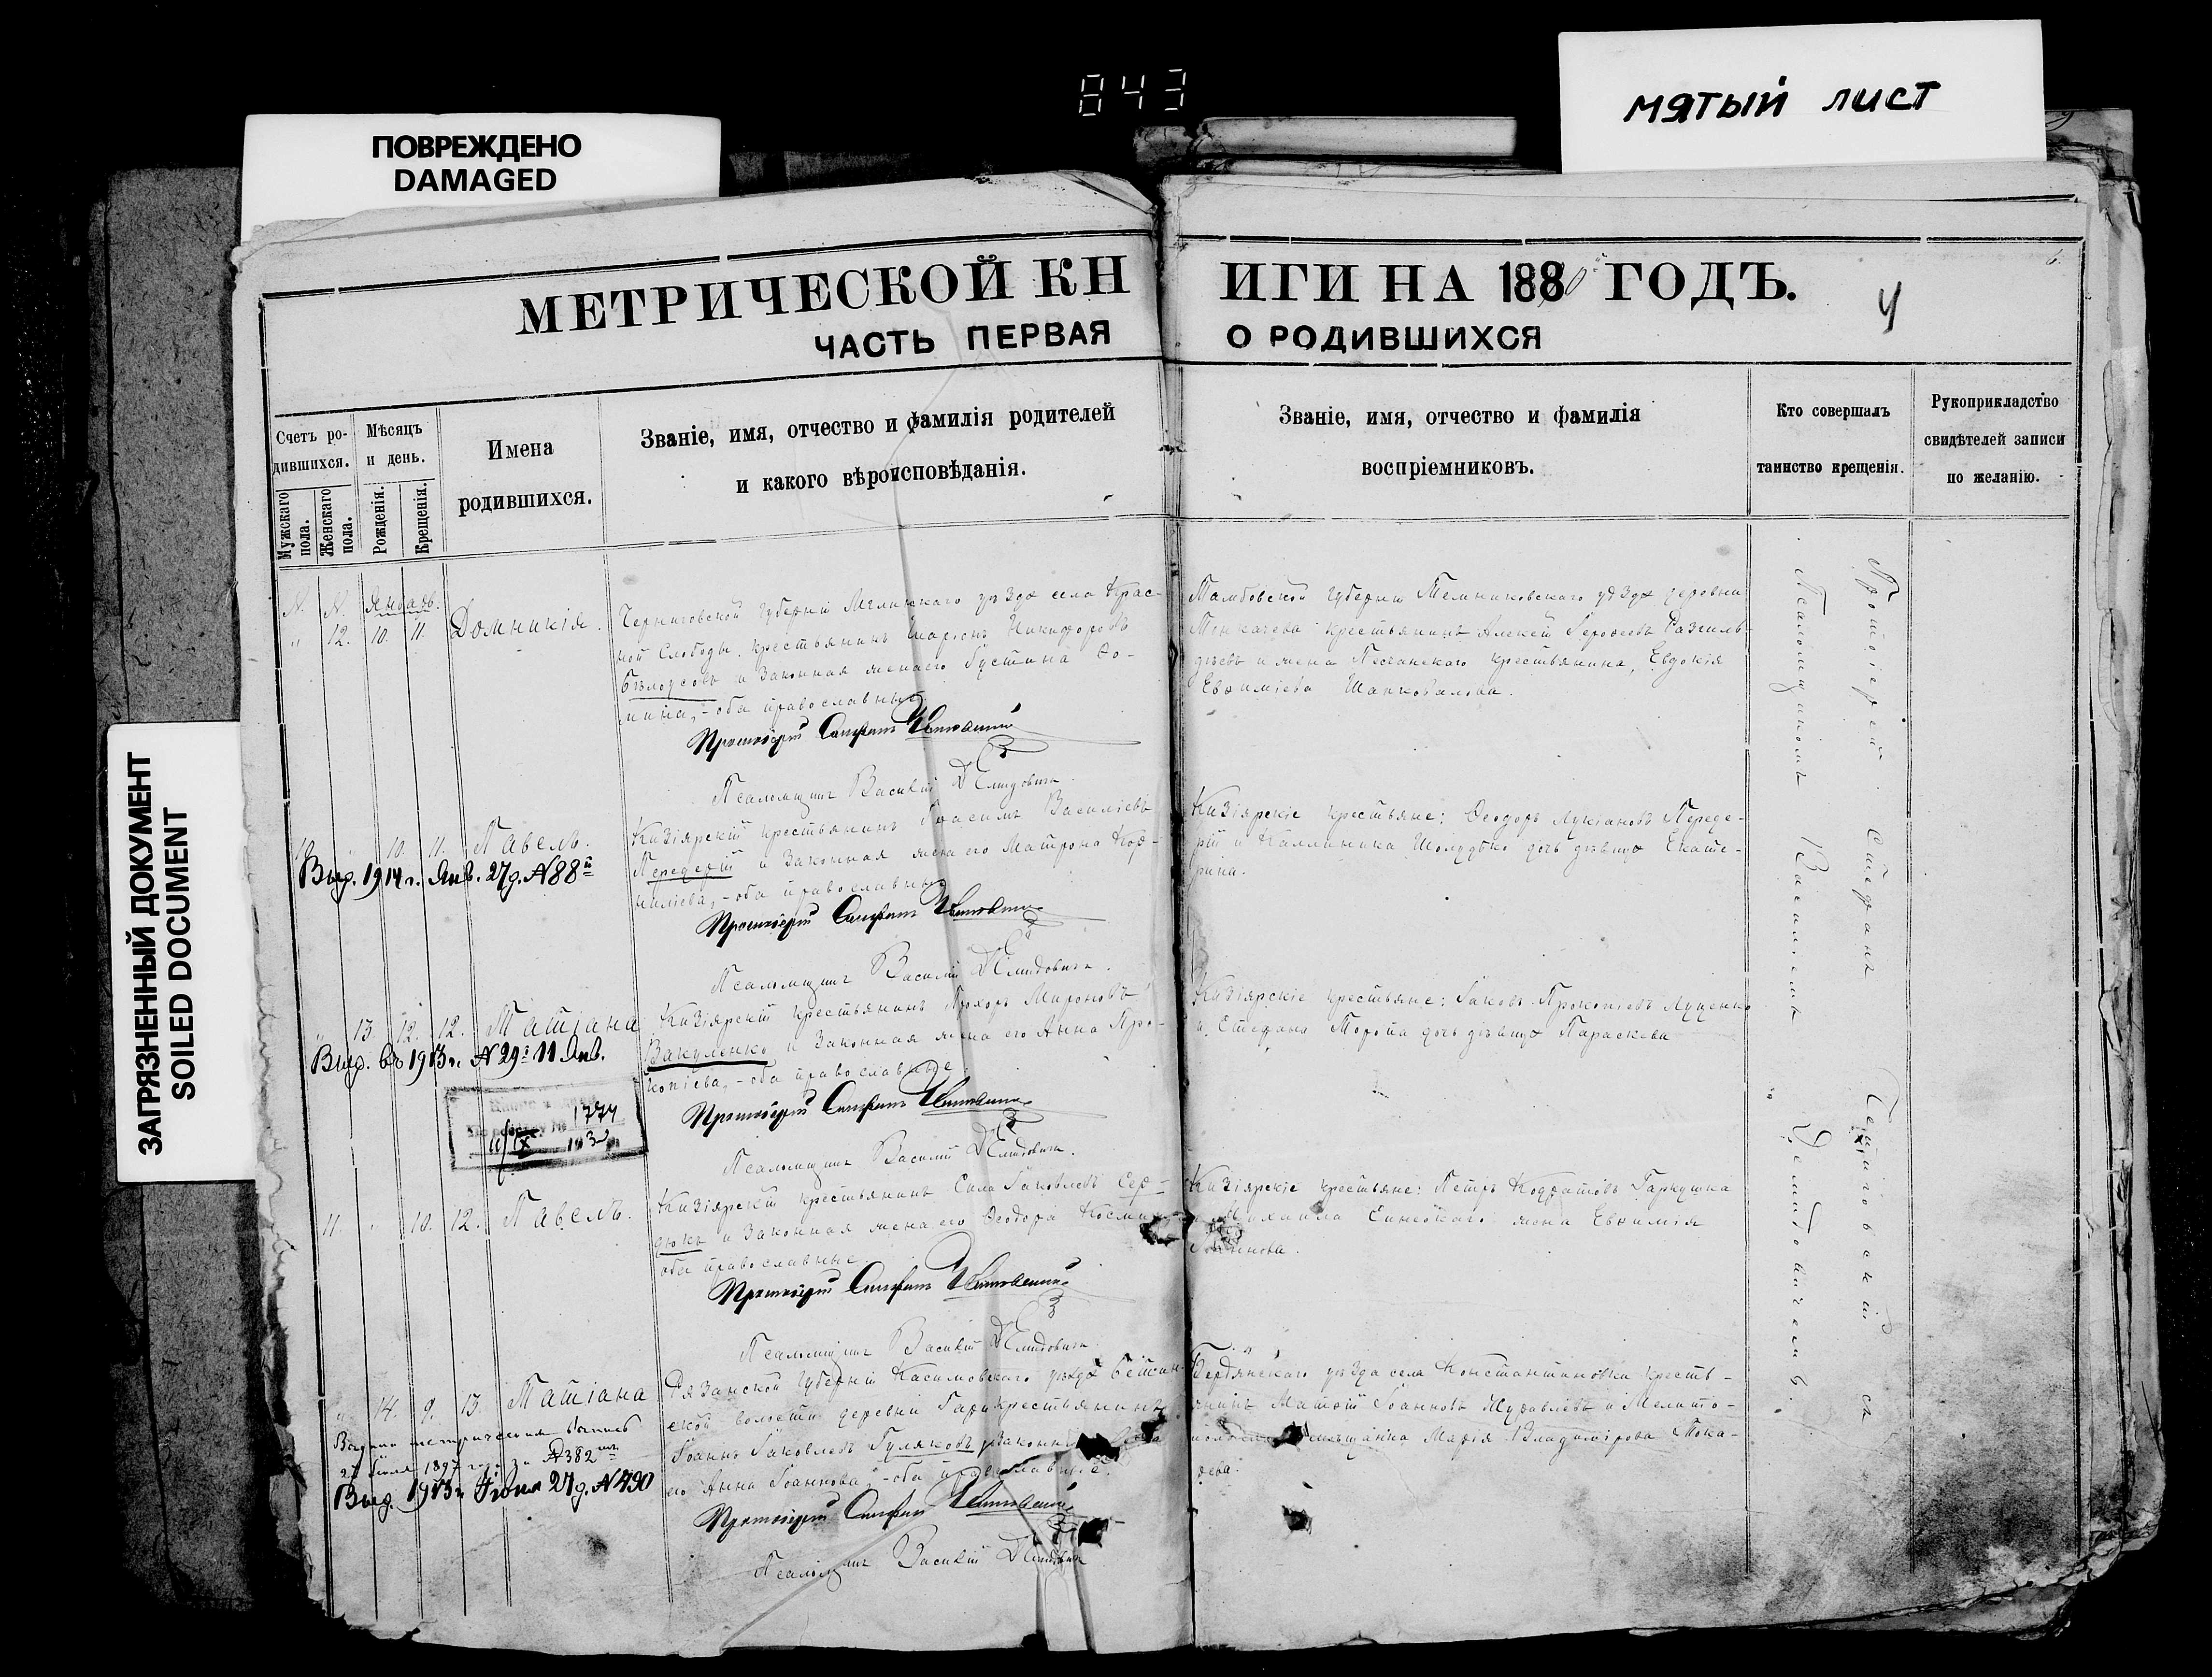 843
мятый лист
ПОВРЕЖДЕНО
DAMAGED
ЗАГРЯЗНЕННЫЙ ДОКУМЕНТ
SOILED DOCUMENT
МЕТРИЧЕСКОЙ КНИГИ НА 1880 ГОДЪ.
4
ЧАСТЬ ПЕРВАЯ О РОДИВШИХСЯ
Счетъ ро-
дившихся.
Мужскаго
пола.
Женскаго
пола.
Мѣсяцъ
и день.
Рожденія.
Крещенія.
Имена
родившихся.
Званіе, имя, отчество и фамилія родителей
и какого вѣроисповѣданія.
Званіе, имя, отчество и фамилія
воспріемниковъ.
Кто совершалъ
таинство крещенія.
Рукоприкладство
свидѣтелей записи
по желанію.
№. №. Январь.
" 12. 10. 11. Домникія.
Черниговской губерніи Мглинскаго уѣзда села Крас-
ной Слободы, крестьянинъ Иларіонъ Никифоровъ
Бѣлоусовъ и законная жена его Іустина Ѳо-
мина, - оба православные.
Протоіерей Стефанъ
Псаломщикъ Василій Демидовичъ.
Тамбовской губерніи Темниковскаго уѣзда деревни
крестьянинъ Алексей
и жена крестьянина, Евдокія
Евѳиміева Шаповалова.
10. " 10. 11. Павелъ.
Выд. 1914 г. Янв. 27 д. № 88й
Кизіярскій крестьянинъ Герасимъ Василіевъ
Передерій и законная жена его Матрона Кор-
ниліева, - оба православные.
Протоіерей Стефанъ
Псаломщикъ Василій Демидовичъ.
Кизіярскіе крестьяне: Ѳеодоръ Лукіановъ Переде-
рій и Каллиника Шолудько дочь дѣвица Екате-
рина.
" 13 12. 12. Татіана
Выд. въ 1913 г. № 29й 11 Янв.
1774
Кизіярскій крестьянинъ Прохоръ Мироновъ
Вакуленко и законная жена его Анна Про-
копіева, - оба православные.
Протоіерей Стефанъ
Псаломщикъ Василій Демидовичъ.
Кизіярскіе крестьяне: Іаковъ Прокопіевъ Луценко
и Стефана дочь дѣвица Параскева
11. " 10. 12. Павелъ.
Кизіярскій крестьянинъ Сила Іаковлевъ Сер-
дюкъ и законная жена его Ѳеодора
оба православные.
Протоіерей Стефанъ
Псаломщикъ Василій Демидовичъ.
Кизіярскіе крестьяне: Петръ Кодратовъ Гаркушка
и Михаила жена Евѳимія
Іоаннова.
" 14. 9. 13. Татіана
Выдана метрическая выпись
1897 года за № 382
Выд. 1913 г. Іюня 27 д. № 490
Рязанской губерніи Касимовскаго уѣзда
волости деревни крестьянинъ
Іоаннъ Іаковлевъ Гуляковъ и законная жена
его Анна Іоаннова, - оба православные.
Протоіерей Стефанъ
Псаломщикъ Василій Демидовичъ
Бердянскаго уѣзда села Константиновки кресть-
янинъ Матѳій Іоанновъ Журавлевъ и Мелито-
мѣщанка Марія Владимірова Тока-
рева.
Протоіерей Стефанъ съ
Псаломщикомъ Василіемъ Демидовичемъ.